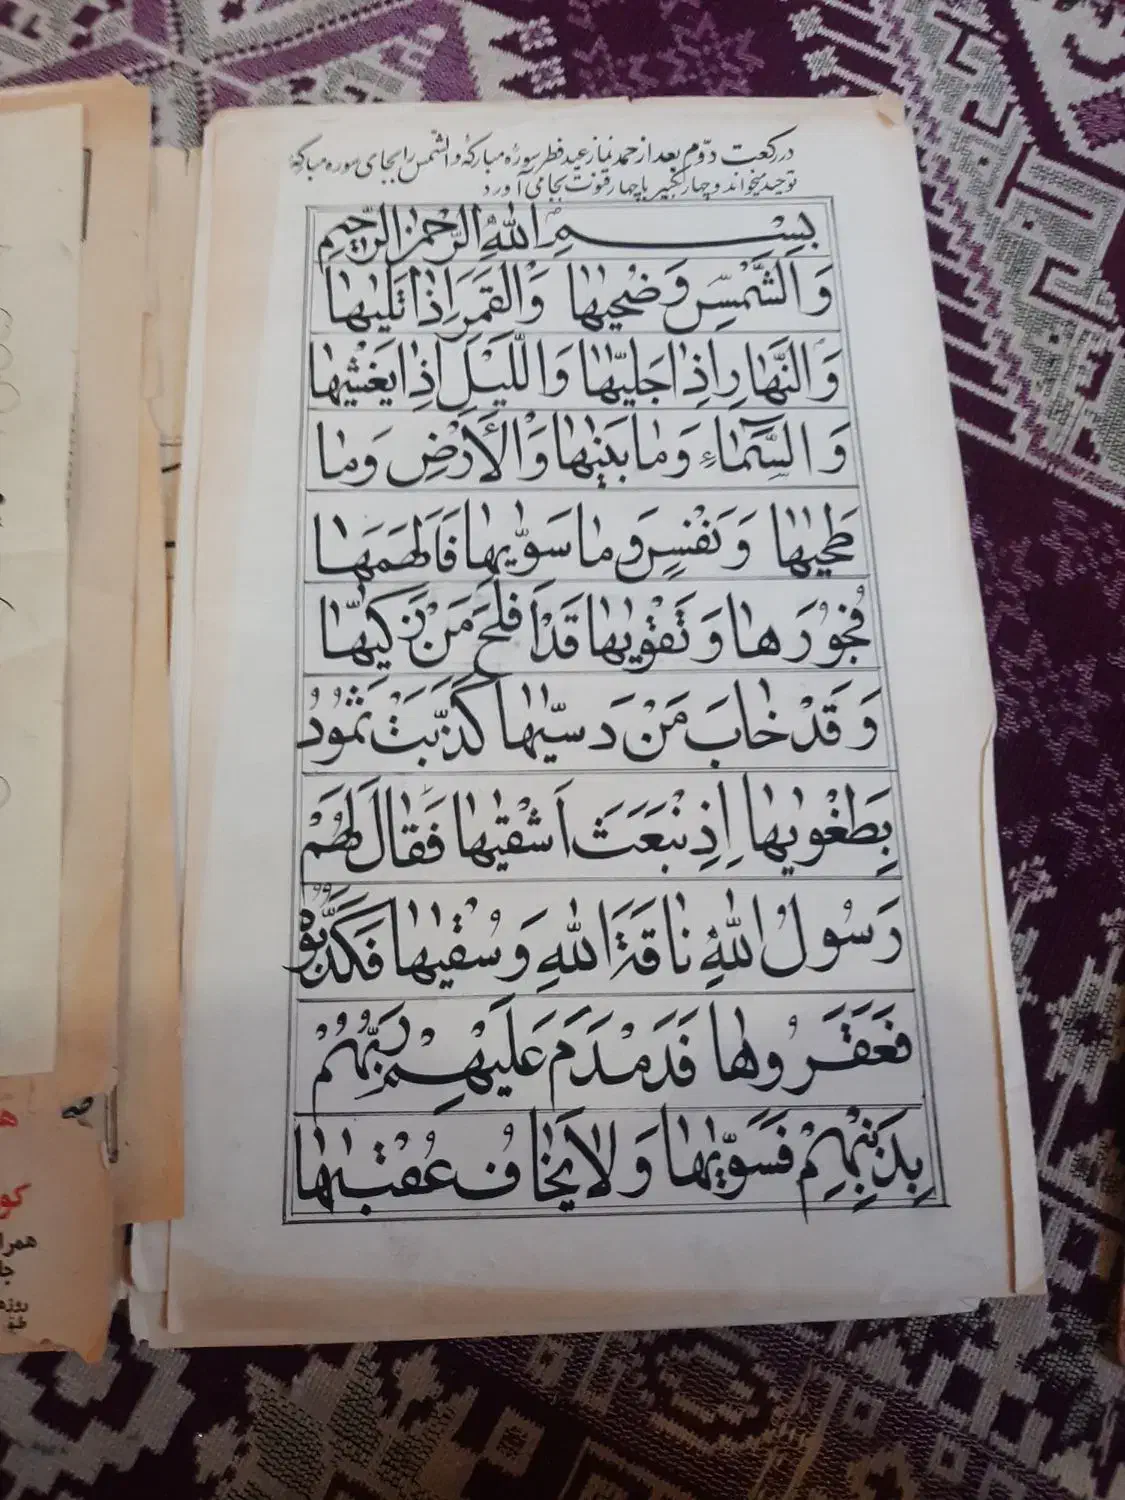 در رکعت دوّم بعد از حمد نماز عید فطر سورهٔ مبارکهٔ والشّمس را بجای سوره مبارکهٔ
توحید میخواند و چهار تکبیر با چهار قنوت بجا می آورد
بِسْمِ اللّٰهِ الرَّحْمٰنِ الرَّحیمِ
وَالشَّمْسِ وَ ضُحیٰها وَالْقَمَرِ اِذٰا تَلیٰها
وَالنَّهٰارِ اِذٰا جَلیّٰها وَاللَّیْلِ اِذٰا یَغْشیٰها
وَالسَّمٰاءِ وَ مٰا بَنیٰهٰا وَالْأَرْضِ وَمٰا
طَحیٰهٰا وَ نَفْسٍ وَ مٰا سَوّٰیهٰا فَاَلْهَمَهٰا
فُجُورَهٰا وَ تَقْویٰهٰا قَدْ اَفْلَحَ مَنْ زَکیّٰهٰا
وَ قَدْ خٰابَ مَنْ دَسیّٰهٰا کَذَّبَتْ ثَمُودُ
بِطَغْویٰهٰا اِذِ نْبَعَثَ اَشْقیٰهٰا فَقٰالَ لَهُمْ
رَسُولُ اللّٰهِ نٰاقَةَ اللّٰهِ وَ سُقْیٰهٰا فَکَذَّبُوهُ
فَعَقَرُوهٰا فَدَمْدَمَ عَلَیْهِمْ رَبُّهُمْ
بِذَنْبِهِمْ فَسَوّٰیهٰا وَ لٰا یَخٰافُ عُقْبٰهٰا
همرا
جا
روزه